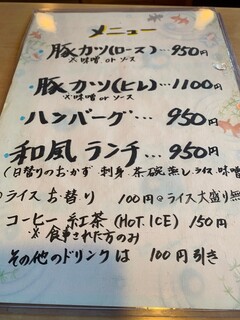 メニュー
豚カツ(ロース)…950円
※味噌 or ソース
豚カツ(ヒレ)…1100円
※味噌 or ソース
ハンバーグ…950円
和風ランチ…950円
(日替りのおかず 刺身 茶碗蒸し ライス 味噌
ライス お替り 100円 ライス大盛り無
コーヒー 紅茶(HOT. ICE) 150円
※食事された方のみ
その他のドリンクは 100円引き